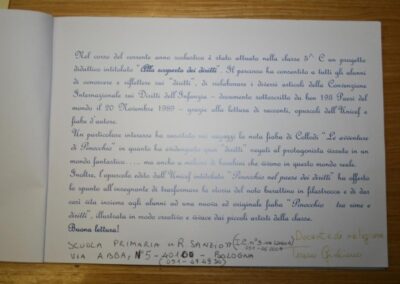 Nel corso del corrente anno scolastico è stato attuato nella classe 5^ C un progetto
didattico intitolato "Alla scoperta dei diritti". Il percorso ha consentito a tutti gli alunni
di conoscere e riflettere sui "diritti", di rielaborare i diversi articoli della Convenzione
Internazionale sui Diritti dell'Infanzia - documento sottoscritto da ben 193 Paesi del
mondo il 20 Novembre 1989 - grazie alla lettura di racconti, opuscoli dell'Unicef e
fiabe d'autore.
Un particolare interesse ha suscitato nei ragazzi la nota fiaba di Collodi "Le avventure
di Pinocchio" in quanto ha evidenziato quei "diritti" negati al protagonista vissuto in un
mondo fantastico.... ma anche a milioni di bambini che vivono in questo mondo reale.
Inoltre, l'opuscolo edito dall'Unicef intitolato "Pinocchio nel paese dei diritti" ha offerto
lo spunto all'insegnante di trasformare la storia del noto burattino in filastrocca e di dar
vita insieme agli alunni ad una nuova ed originale fiaba "Pinocchio tra rime e
diritti", illustrata in modo creativo e vivace dai piccoli artisti della classe.
Buona lettura!
SCUOLA PRIMARIA "R SANZIO" (I.C. n° 5
VIA ABBA, N° 5 - 40100 - BOLOGNA
Docente